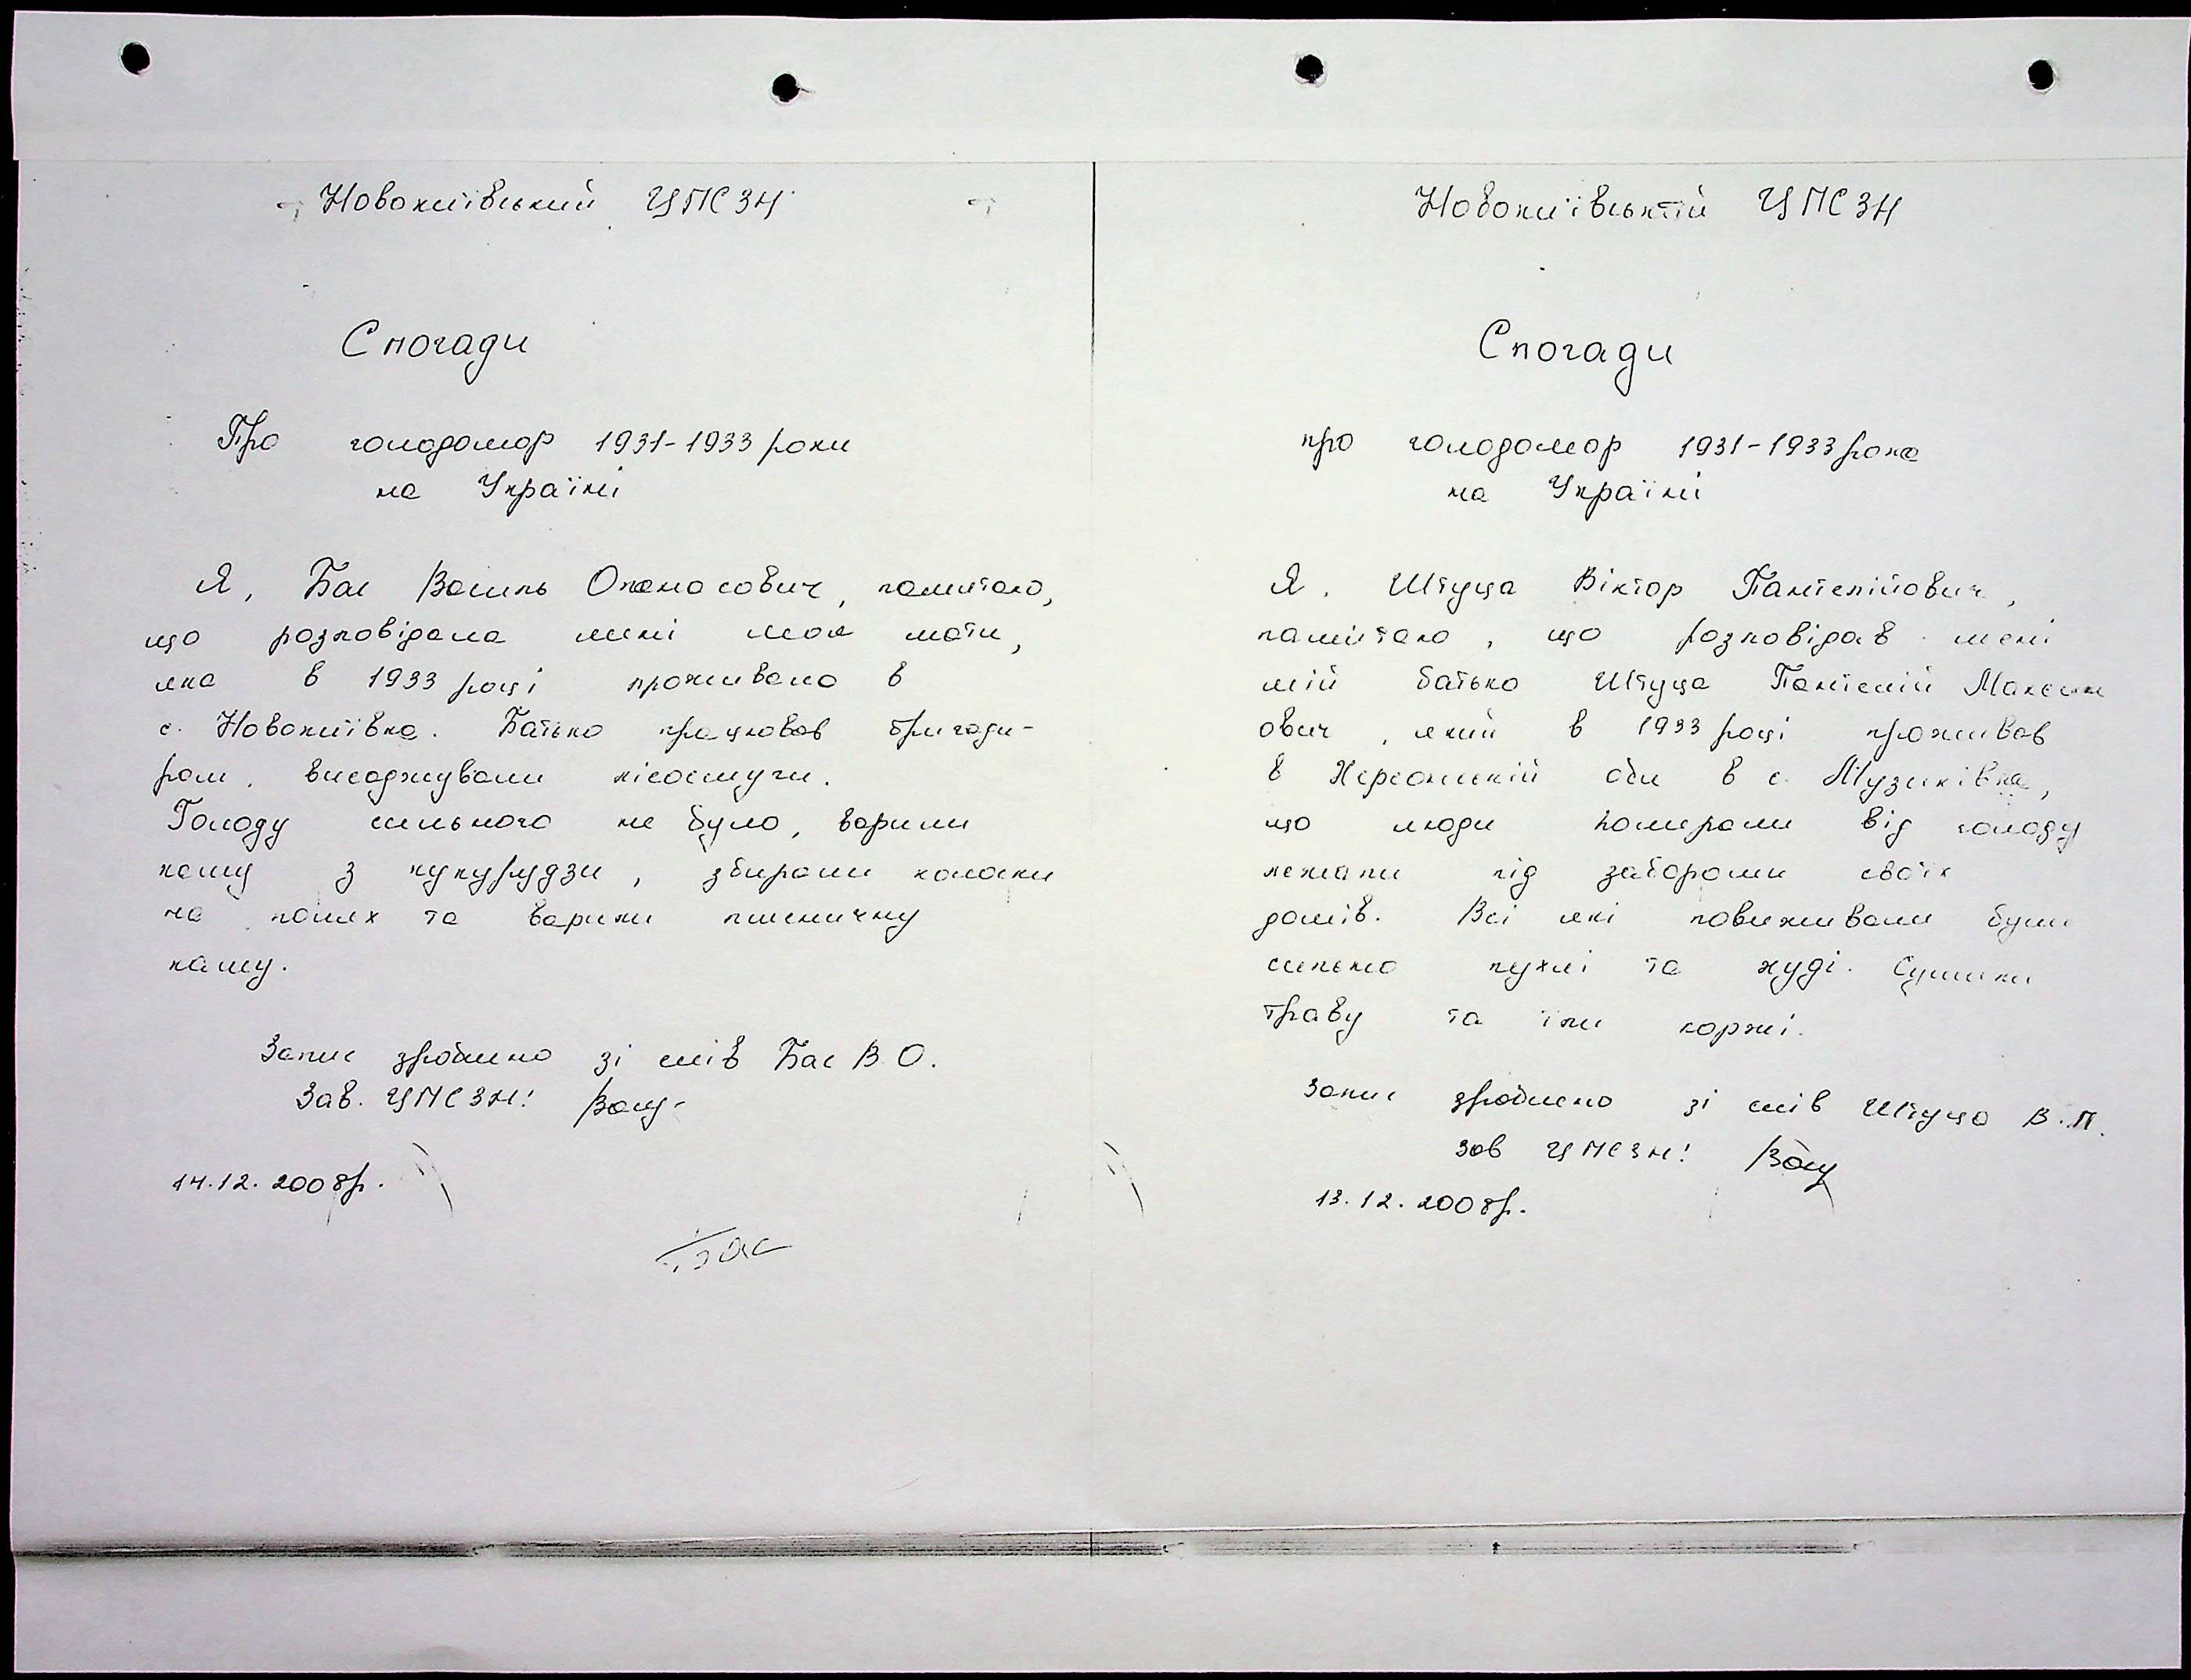 Новокиївський ЦПСЗН
Спогади
Про голодомор 1931-1933 роки
на Україні
Я, Бас Василь Опанасович, памятаю,
що розповідала мині моя мати,
яка в 1933 році проживала в
с. Новокиївка. Батько працював бригади-
ром, висаджували лісосмуги.
Голоду сильного не було, варили
кашу з кукурудзи, збирали колоски
на полях та варили пшеничну
кашу.
Запис зроблино зі слів Бас В О.
Зав. ЦПСЗН:
14.12.2008р.
Бас
Новокиївський ЦПСЗН
Спогади
про голодомор 1931-1933 рока
на Україні
Я. Штуца Віктор Пантелійович,
памітаю, що розповідав мені
мій батько Штуца Пантелій Максим
ович, який в 1933 році проживав
в Херсонській обл в с. Музиківка,
що люди помирали від голоду
лежали під заборами своїх
домів. Всі які повиживали були
сильно пухлі та худі. Сушили
траву та їли коржі.
Запис зроблено зі слів Штуца В.П.
Зав ЦПСЗН:
13.12.2008р.